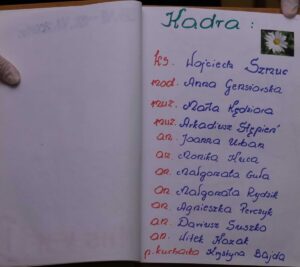 Kadra:
ks. Wojciech Szmuc
mod. Anna Gensiorska
muz. Marta Kędziora
muz. Arkadiusz Stępień
an. Joanna Urban
an. Monika Huca
an. Małgorzata Guła
an. Małgorzata Rydzik
an. Agnieszka Perczyk
an. Dariusz Suszko
an. Witek Kozak
p. kucharka Krystyna Bajda